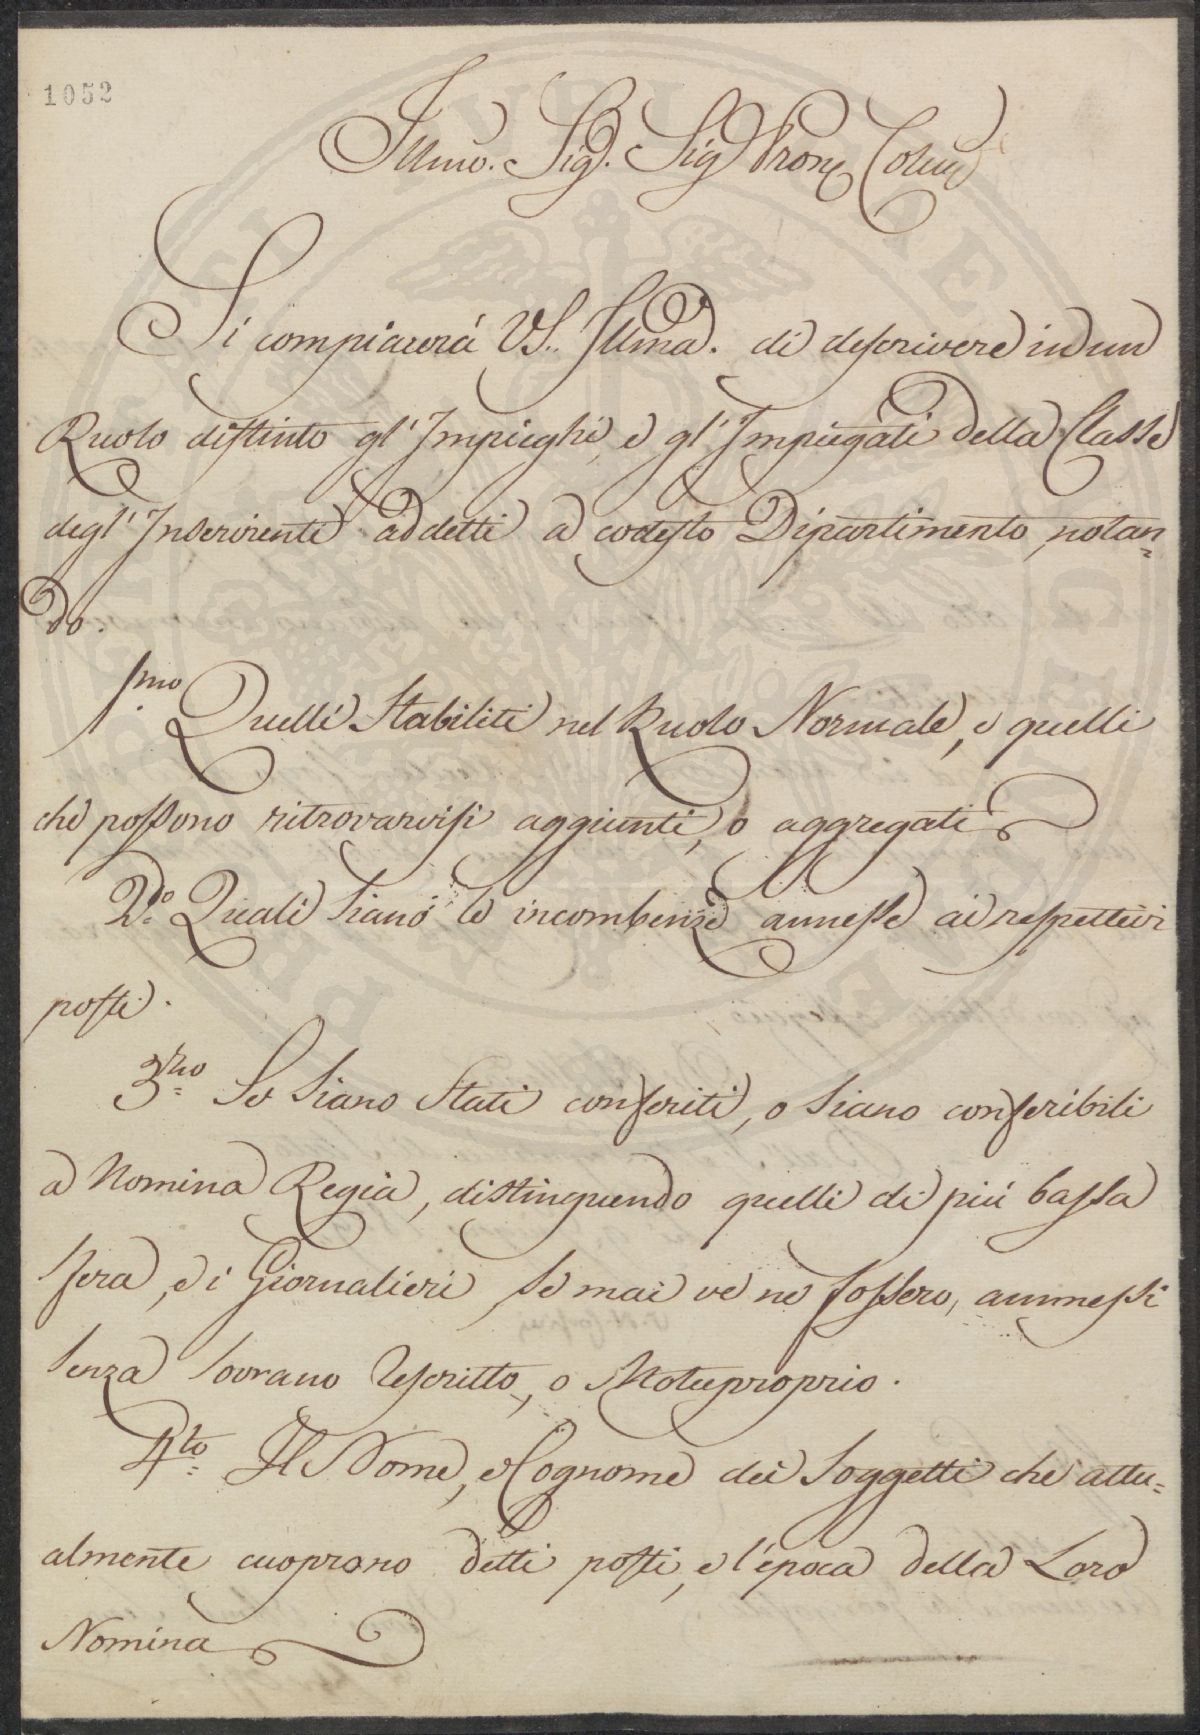 1052
Illmo. Sig. Sig Prone Colmo
Si compiacerà VS. Illma. di descrivere in un
Ruolo distinto gl'Impieghi, e gl'Impiegati della Classe
degl'Inservienti addetti a codesto Dipartimento, notan=
do.
1.mo Quelli Stabiliti nel Ruolo Normale, e quelli
che possono ritrovarvisi aggiunti, o aggregati
2.o Quali siano le incombenze annesse ai respettivi
posti.
3.zo Se siano Stati conferiti, o siano conferibili
a Nomina Regia, distinguendo quelli di più bassa
sfera, e i Giornalieri se mai ve ne fossero, ammessi
senza Sovrano Rescritto, o Motuproprio.
4.to Il Nome, e Cognome dei Soggetti che attu=
almente cuoprono detti posti, e l'epoca della Loro
Nomina